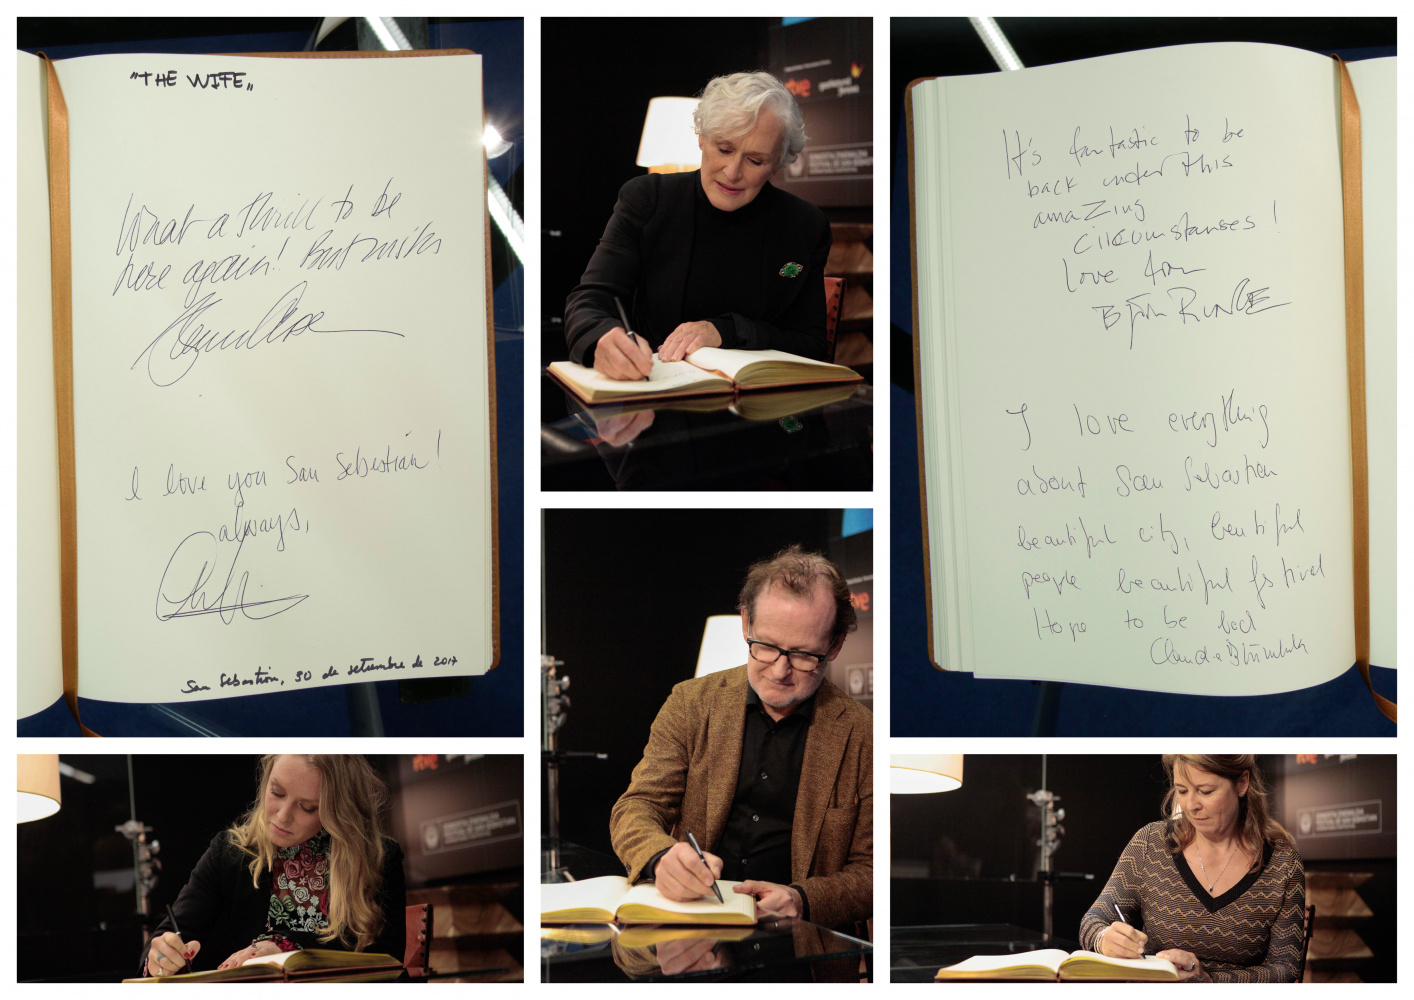 "THE WIFE"
What a thrill to be
here again! Best wishes
I love you San Sebastian!
always,
San Sebastián, 30 de setiembre de 2017
rtve
It's fantastic to be
back under this
amaZing
circumstanses!
Love from
Björn RUNGE
I love everything
about San Sebastian
beautiful city, beautiful
people beautiful festival
Hope to be back
Claudia
rtve